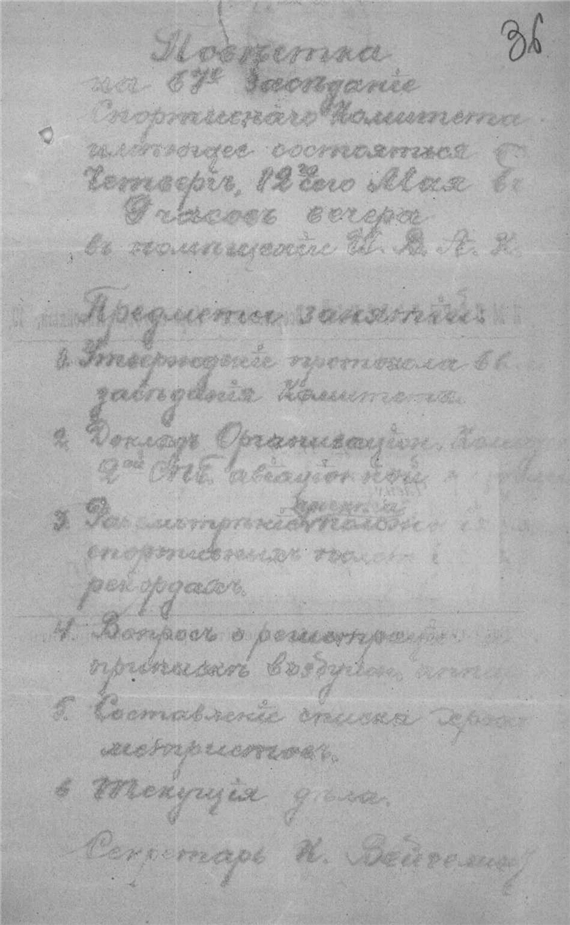 36
Повѣстка
на 67е Засѣданіе
Спортивнаго Комитета
имѣющее состояться
Четвергъ, 12го сего Мая въ
9 часовъ вечера
въ помѣщеніи И. В. А. К.
Предметы занятій:
1. Утвержденіе протокола
засѣданія Комитета.
2. Докладъ Организаціон.
2ой СПБ. авіаціонной
проекта
3. Разсмотрѣніе
спортивныхъ
рекордахъ.
4. Вопросъ о регистраціи
припискѣ воздушн.
5. Составленіе списка хроно-
метристовъ.
6 Текущія дѣла.
Секретарь К. Вейгелинъ